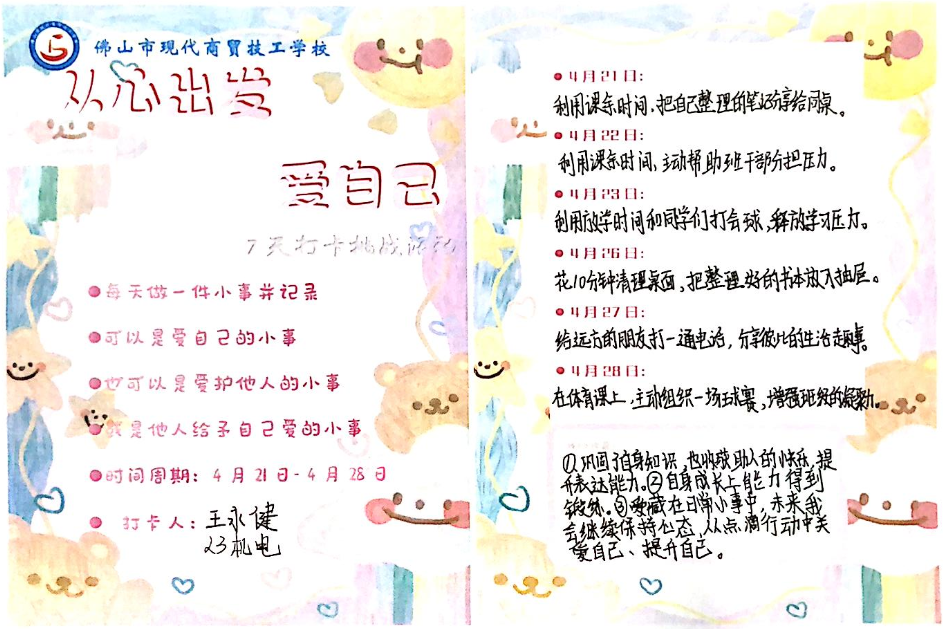 佛山市现代商贸技工学校
从心出发
爱自己
7天打卡挑战活动
每天做一件小事并记录
可以是爱自己的小事
也可以是爱护他人的小事
或是他人给予自己爱的小事
时间周期：4月21日-4月28日
打卡人：王永健
23机电
4月21日：
利用课余时间、把自己整理的笔记分享给同桌。
4月22日：
利用课余时间、主动帮助班干部分担压力。
4月23日：
利用放学时间和同学们打会球，释放学习压力。
4月26日：
花10分钟清理桌面、把整理好的书本放入抽屉。
4月27日：
给远方的朋友打一通电话，分享彼此的生活趣事。
4月28日：
在体育课上，主动组织一场球赛，增强班级的凝聚力。
①巩固了自身知识，也收获助人的快乐，提
升表达能力。②自身成长上能力得到
锻炼。③爱藏在日常小事中，未来我
会继续保持心态，从点滴行动中关
爱自己、提升自己。